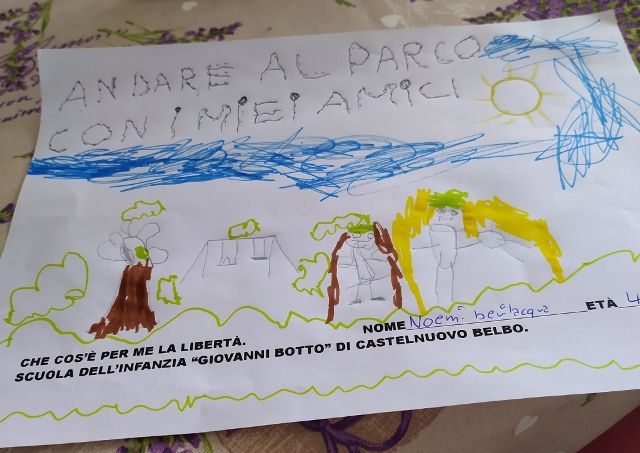 ANDARE AL PARCO
CON I MIEI AMICI
NOME Noemi bevilacqua ETÀ 4
CHE COS'È PER ME LA LIBERTÀ.
SCUOLA DELL'INFANZIA "GIOVANNI BOTTO" DI CASTELNUOVO BELBO.